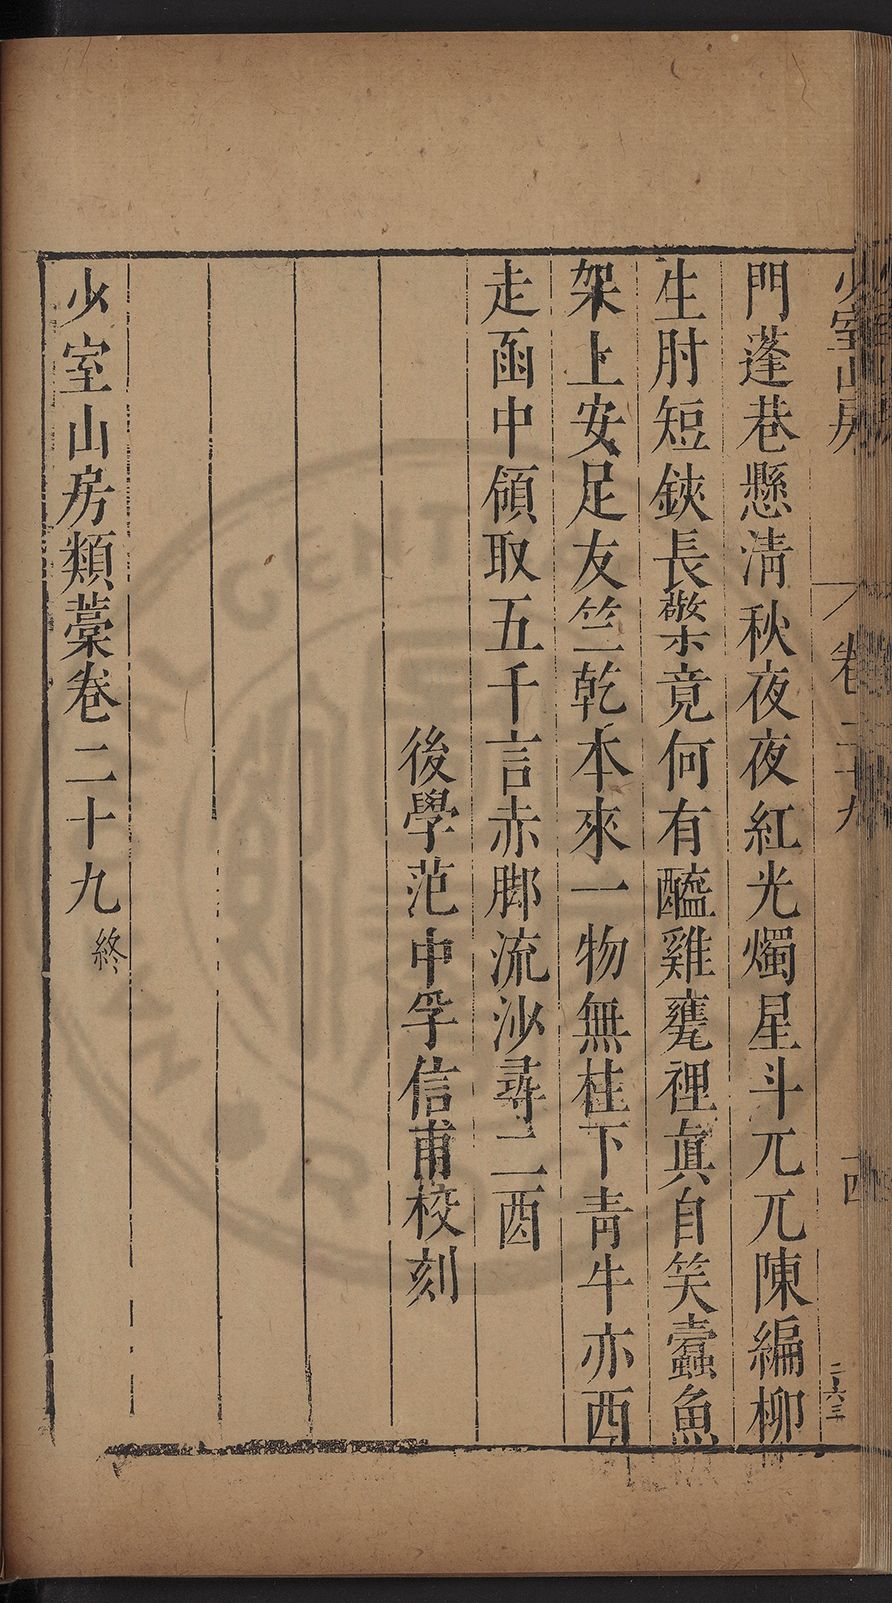 門蓬巷懸淸秋夜夜紅光燭星斗兀兀陳編柳
生肘短鋏長檠竟何有醯雞甕裡真自笑蠹魚
架上安足友竺乾本來一物無桂下靑牛亦西
走函中領取五千言赤脚流沙尋二酉
後學范中孚信甫校刻
少室山房類藁卷二十九終
少室山房
卷二十九
二六三